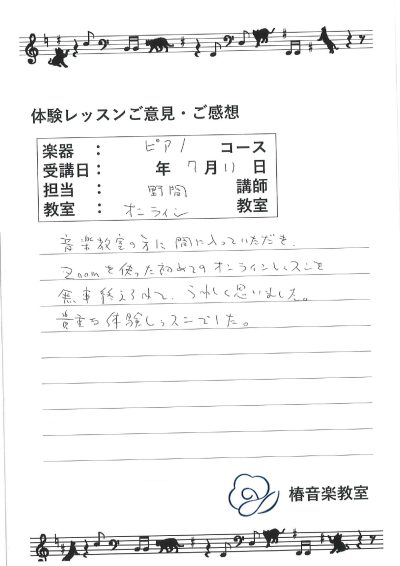 体験レッスンご意見・ご感想
楽器 : ピアノ コース
受講日: 年 7月11日
担当 : 野間 講師
教室 : オンライン 教室
音楽教室の方に間に入っていただき、
Zoomを使った初めてのオンラインレッスンを
無事終えられて、うれしく思いました。
貴重な体験レッスンでした。
椿音楽教室